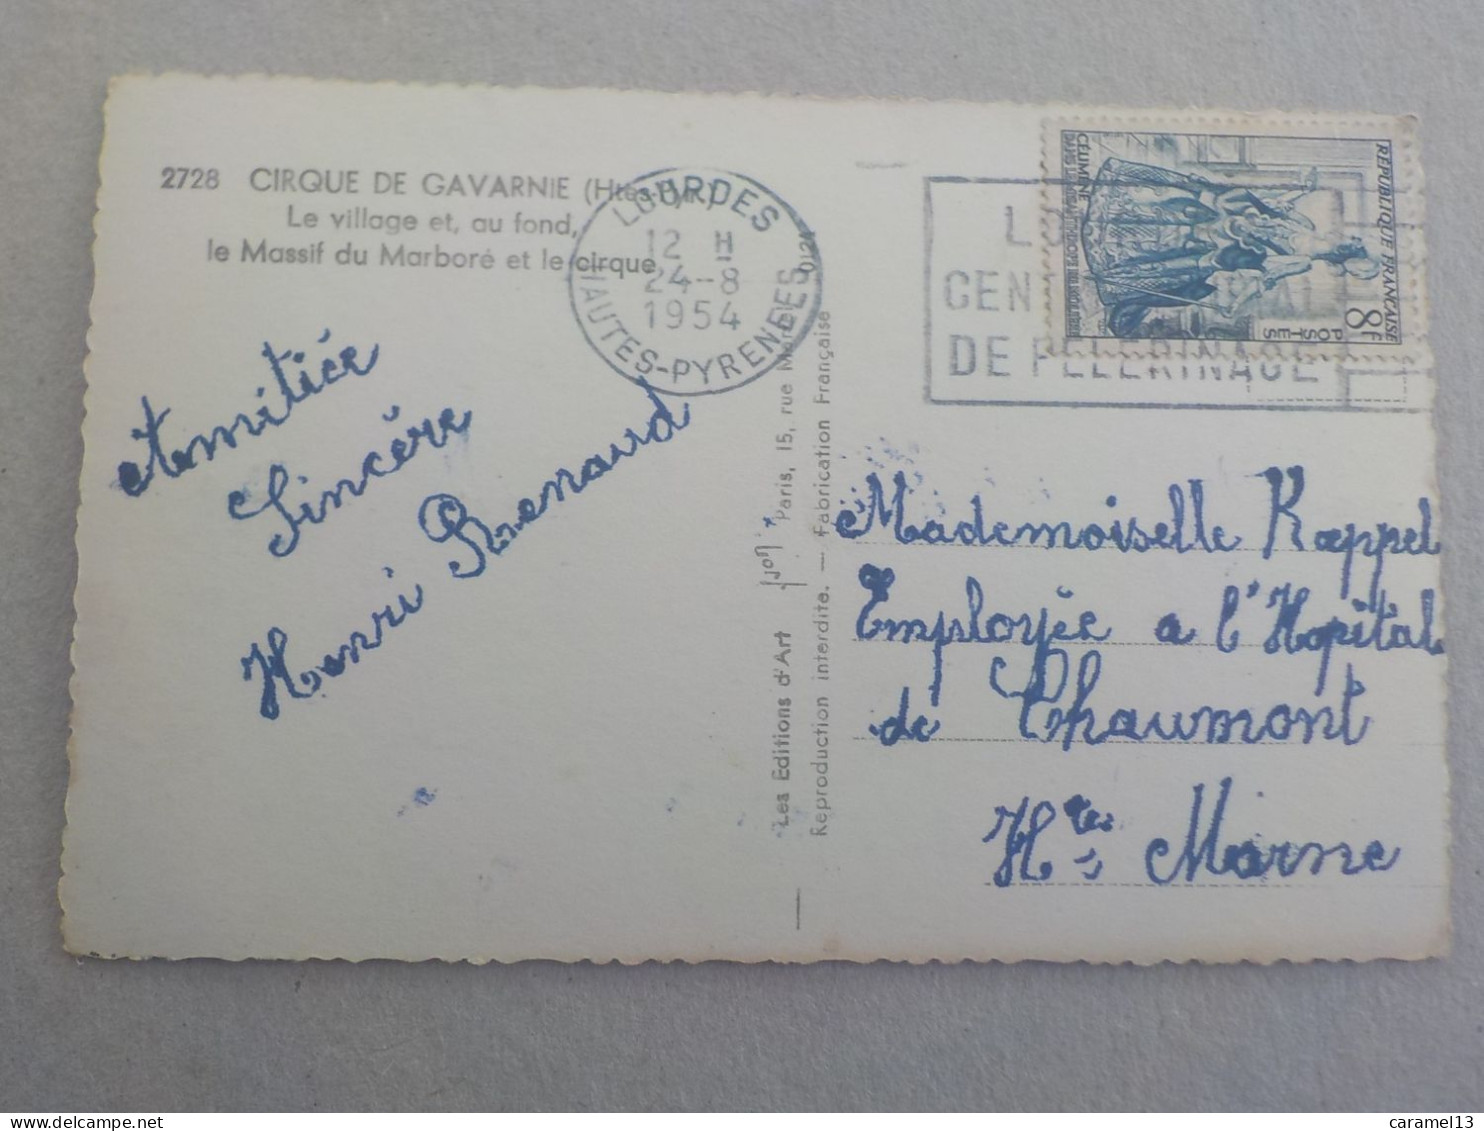 2728 CIRQUE DE GAVARNIE (Htes-Pyr.)
Le village et, au fond,
le Massif du Marboré et le cirque
LOURDES
12 H
24-8
1954
HAUTES-PYRENEES
DE PELERINAGE
REPUBLIQUE FRANÇAISE
POSTES
8F
CELIMENE
Amitiée
Sincère
Henri Renaud
Les Editions d'Art Yvon * Paris, 15, rue
Reproduction interdite. — Fabrication Française
Mademoiselle Kœppel
Employée a l'Hopital
de Chaumont
Hte Marne
caramel13